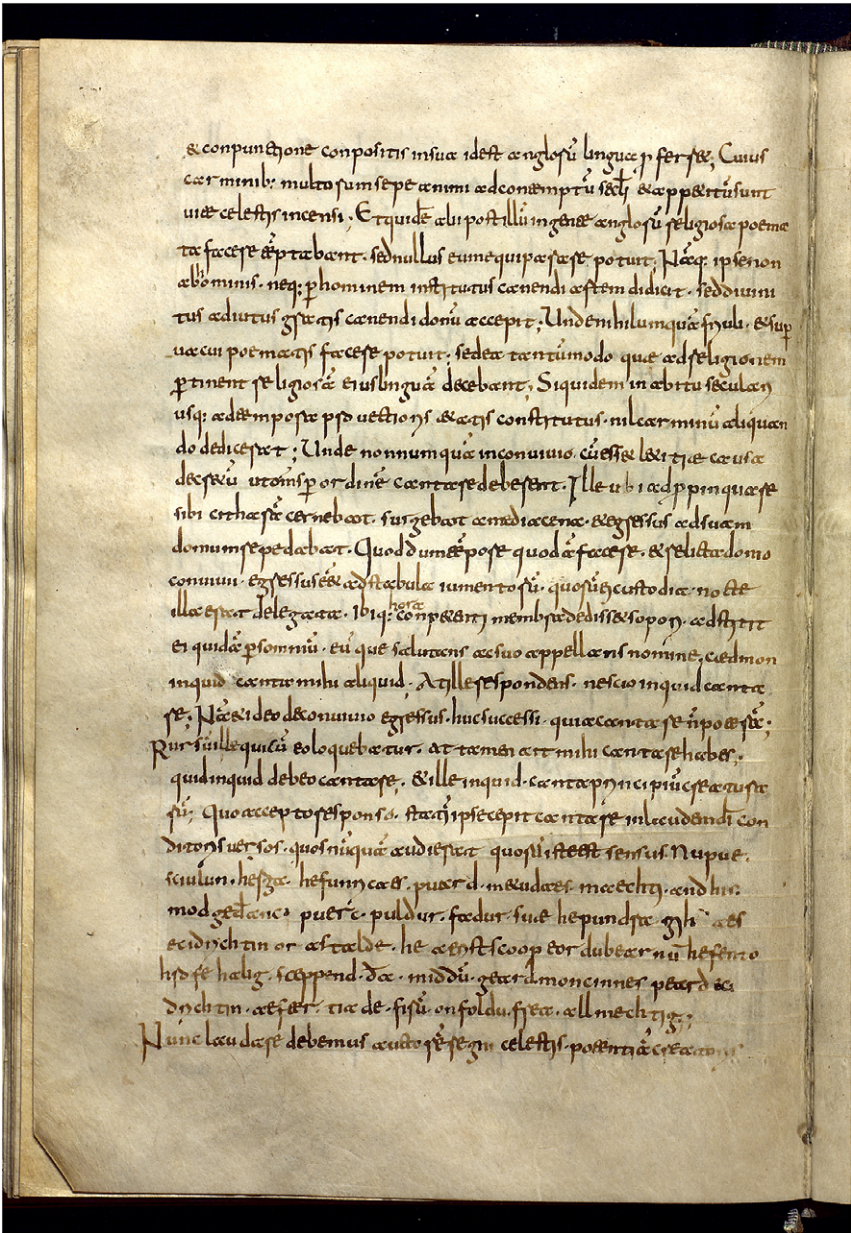 & conpunctione conpositis insua idest anglorū lingua pferret; Cuius
carminib: multorum sepe animi adcontemptū secłi &appetitū sunt
uitæ celestis incensi; Et quidē alii post illū ingente anglorū religiosa poema
ta facere tēptabant. sed nullus eum equiparare potuit; Nāq: ipse non
abhominis. neq: phominem institutus canendi artem didicit. sed diuini
tus adiutus gratis canendi donū accepit; Unde nihil umquā friuoli. &sup
uacui poematis facere potuit. sed ea tantūmodo quæ ad religionem
ptinent religiosā eius linguā decebant; Siquidem in abitu seculari
usq: ad tempora prouectioris ætatis constitutus. nil carminū aliquan
do didicerat; Unde nonnumquā in conuiuio. cū ess& l&itiæ causa
decretū ut oms p ordinē cantare deberent. Ille ubi adppinquare
sibi citharā cernebat. surgebat a media cena. &egressus ad suam
domum repedabat. Quod dum tēpore quodā faceret. &relicta domo
conuiui. egressus ēēt ad stabula iumentorū. quorū ei custodia nocte
illa erat delegata. ibiq: hora conpetenti membra dediss& sopori. adstitit
ei quidā p somniū. eūque salutans ac suo appellans nomine, cædmon
inquid canta mihi aliquid. At ille respondens. nescio inquid canta
re; Nā &ideo de conuiuio egressus. huc successi. quia cantare n̄ poterā;
Rursū ille qui cū eo loquebatur. at tamen ait mihi cantare habes;
quid inquid debeo cantare. &ille inquid. canta principiū creatura
rū; Quo accepto responso. statī ipse cepit cantare in laudem dī con
ditoris uersos. quos nūquā audierat quorū iste est sensus. Nu pue.
sciulun. hergæ. hefunricaes. puard. metudæs. maechti. and his.
modgedanc. puerc. puldur. fadur. suæ he pundra gihuaes
eci drichtin or astalde. he aerist scoop eordu bearnū hefento
hrofe halig. sceppend. ða. middū. geard. moncinnes peard eci
drichtin. æfter. tiade. firū. on foldu. frea. allmechtig;
Nunc laudare debemus auctorē regni celestis. potentiā creatoris